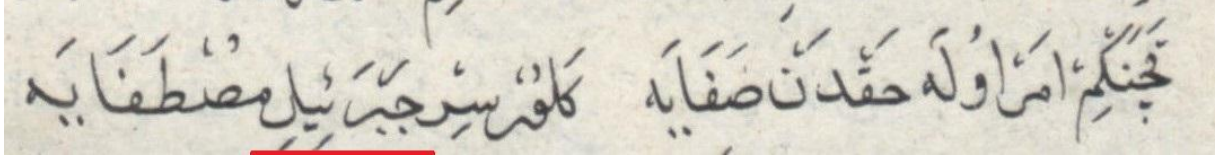 نَچَنكِمْ اَمْرْ اُولَه حَقْدَنْ صَفَايَه كَلُورْ سِرْ جَبْرَئِيلِ مُصْطَفَايَه